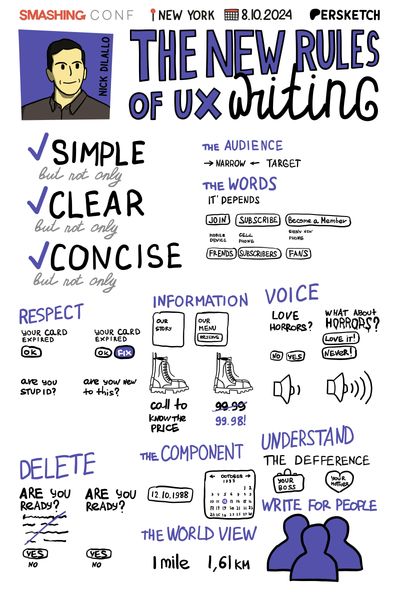 SMASHING CONF
NEW YORK
8.10.2024
PERSKETCH
NICK DILALLO
THE NEW RULES
OF UX writing
SIMPLE
but not only
CLEAR
but not only
CONCISE
but not only
THE AUDIENCE
→ NARROW ← TARGET
THE WORDS
IT DEPENDS
JOIN SUBSCRIBE Become a Member
MOBILE DEVICE
CELL PHONE
PHONE
FRIENDS SUBSCRIBERS FANS
RESPECT
YOUR CARD
EXPIRED
OK
YOUR CARD
EXPIRED
OK FIX
are you
STUPID?
are you new
to this?
INFORMATION
OUR
STORY
OUR
MENU
call to
KNOW THE
PRICE
99.99
99.98!
VOICE
LOVE
HORRORS?
NO YES
WHAT ABOUT
HORRORS?
LOVE IT!
NEVER!
DELETE
ARE YOU
READY?
YES
NO
ARE YOU
READY?
YES
NO
THE COMPONENT
12.10.1988
← OCTOBER →
1988
THE WORLD VIEW
1 mile 1,61 KM
UNDERSTAND
THE DEFFERENCE
YOUR
BOSS
YOUR
MOTHER
WRITE FOR PEOPLE